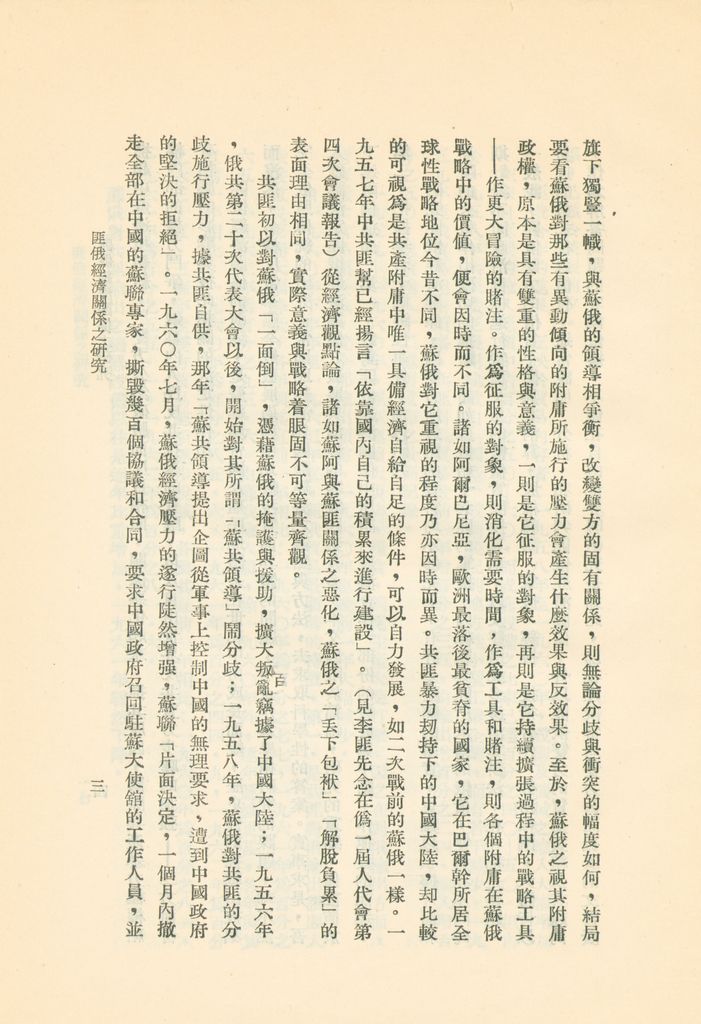 旗下獨豎一幟，與蘇俄的領導相爭衡，改變雙方的固有關係，則無論分歧與衝突的幅度如何，結局
要看蘇俄對那些有異動傾向的附庸所施行的壓力會產生什麼效果與反效果。至於，蘇俄之視其附庸
政權，原本是具有雙重的性格與意義，一則是它征服的對象，再則是它持續擴張過程中的戰略工具
——作更大冒險的賭注。作爲征服的對象，則消化需要時間，作爲工具和賭注，則各個附庸在蘇俄
戰略中的價值，便會因時而不同。諸如阿爾巴尼亞，歐洲最落後最貧脊的國家，它在巴爾幹所居全
球性戰略地位今昔不同，蘇俄對它重視的程度乃亦因時而異。共匪暴力刼持下的中國大陸，却比較
的可視爲是共產附庸中唯一具備經濟自給自足的條件，可以自力發展，如二次戰前的蘇俄一樣。一
九五七年中共匪幫已經揚言「依靠國內自己的積累來進行建設」。（見李匪先念在僞一屆人代會第
四次會議報告）從經濟觀點論，諸如蘇阿與蘇匪關係之惡化，蘇俄之「丢下包袱」「解脫負累」的
表面理由相同，實際意義與戰略着眼固不可等量齊觀。
共匪初以對蘇俄「一面倒」，憑藉蘇俄的掩護與援助，擴大叛亂竊據了中國大陸；一九五六年
，俄共第二十次代表大會以後，開始對其所謂「蘇共領導」鬧分歧；一九五八年，蘇俄對共匪的分
歧施行壓力，據共匪自供，那年「蘇共領導提出企圖從軍事上控制中國的無理要求，遭到中國政府
的堅決的拒絕」。一九六〇年七月，蘇俄經濟壓力的遂行陡然增强，蘇聯「片面決定，一個月內撤
走全部在中國的蘇聯專家，撕毀幾百個協議和合同，要求中國政府召回駐蘇大使舘的工作人員，並
匪俄經濟關係之研究
三